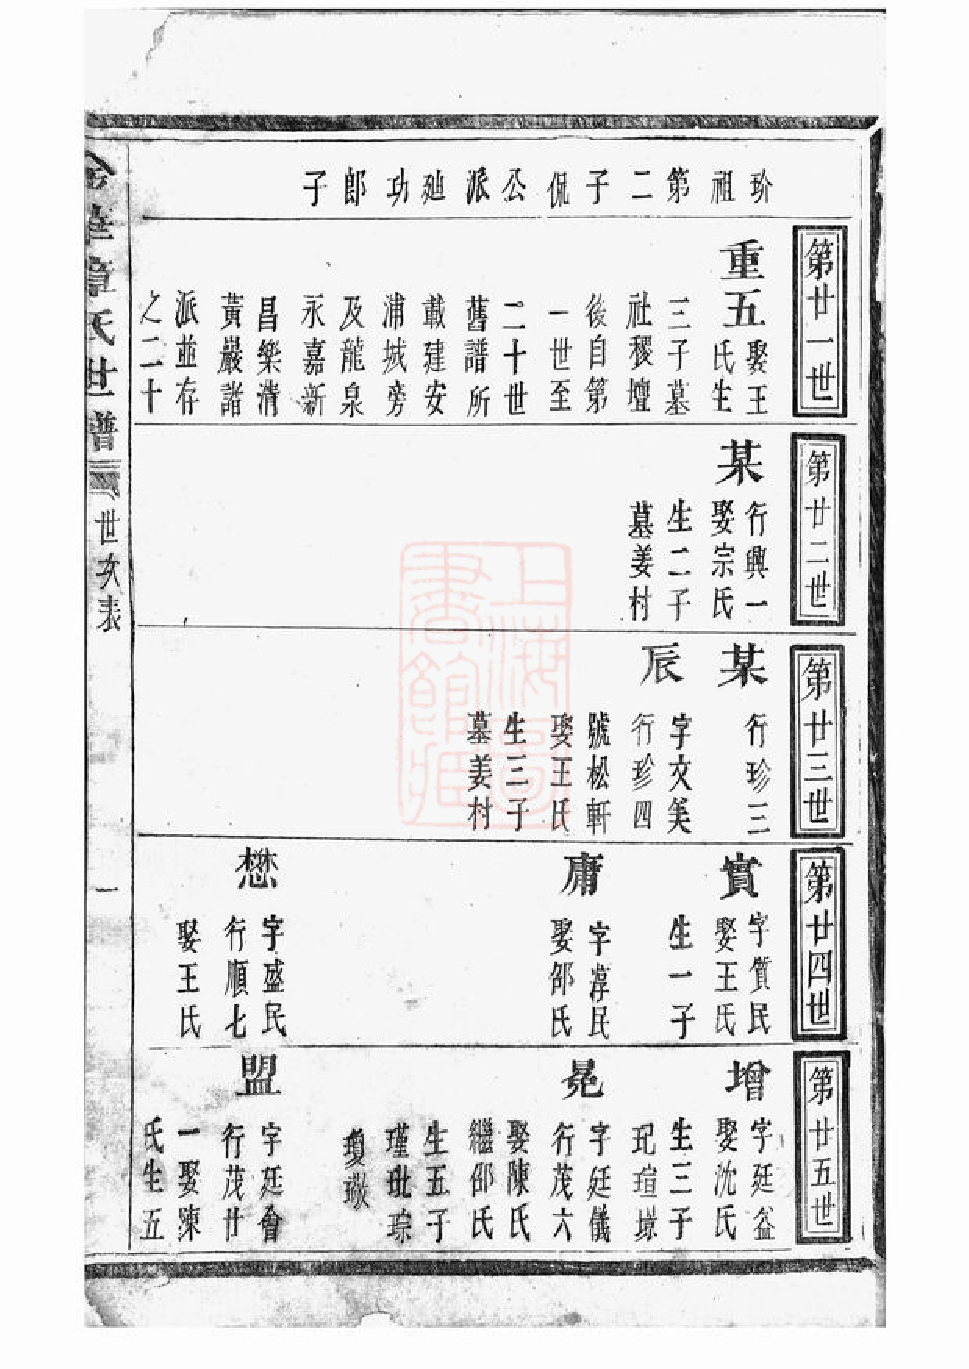 玠祖第二子侃公派廸功郎子
第廿一世
重五
娶王
氏生
三子墓
社稷壇
後自第
一世至
二十世
舊譜所
載建安
浦城旁
及龍泉
永嘉新
昌樂清
黃巖諸
派並存
之二十
第廿二世
某
行興一
娶宗氏
生二子
墓姜村
第廿三世
某
行珍三
辰
字文美
行珍四
號松軒
娶王氏
生三子
墓姜村
第廿四世
實
字質民
娶王氏
生一子
庸
字淳民
娶邵氏
懋
字盛民
行順七
娶王氏
第廿五世
增
字廷益
娶沈氏
生三子
玘瑄璟
冕
字廷儀
行茂六
娶陳氏
繼邵氏
生五子
瑾玭琮
瓊
盟
字廷會
行茂廿
一娶陳
氏生五
金華章氏世譜
世次表
一
上海圖書館藏